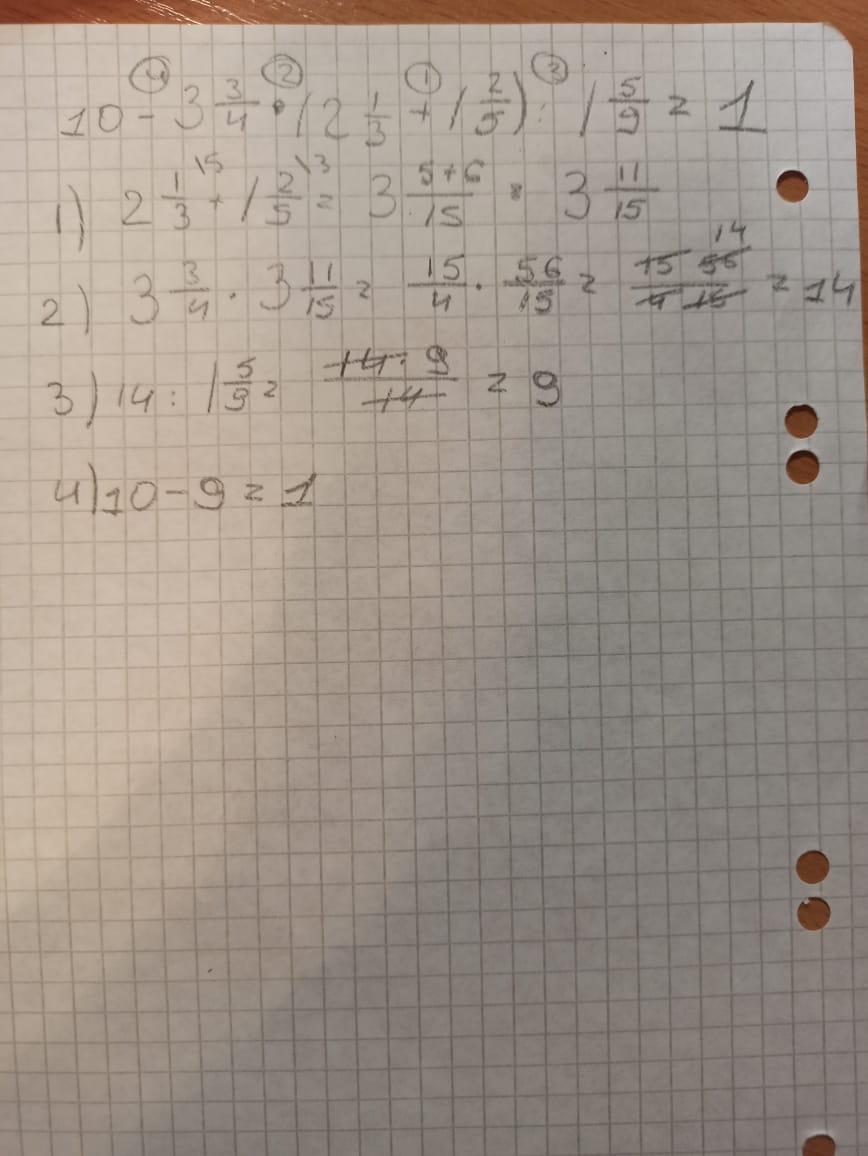 10 - 3 3/4 · (2 1/3 + 1 2/5) : 1 5/9 = 1
1) 2 1/3 \5 + 1 2/5 \3 = 3 5+6/15 = 3 11/15
2) 3 3/4 · 3 11/15 = 15/4 · 56/15 = 15 56/4 15 14 = 14
3) 14 : 1 5/9 = 14 · 9/14 = 9
4) 10 - 9 = 1